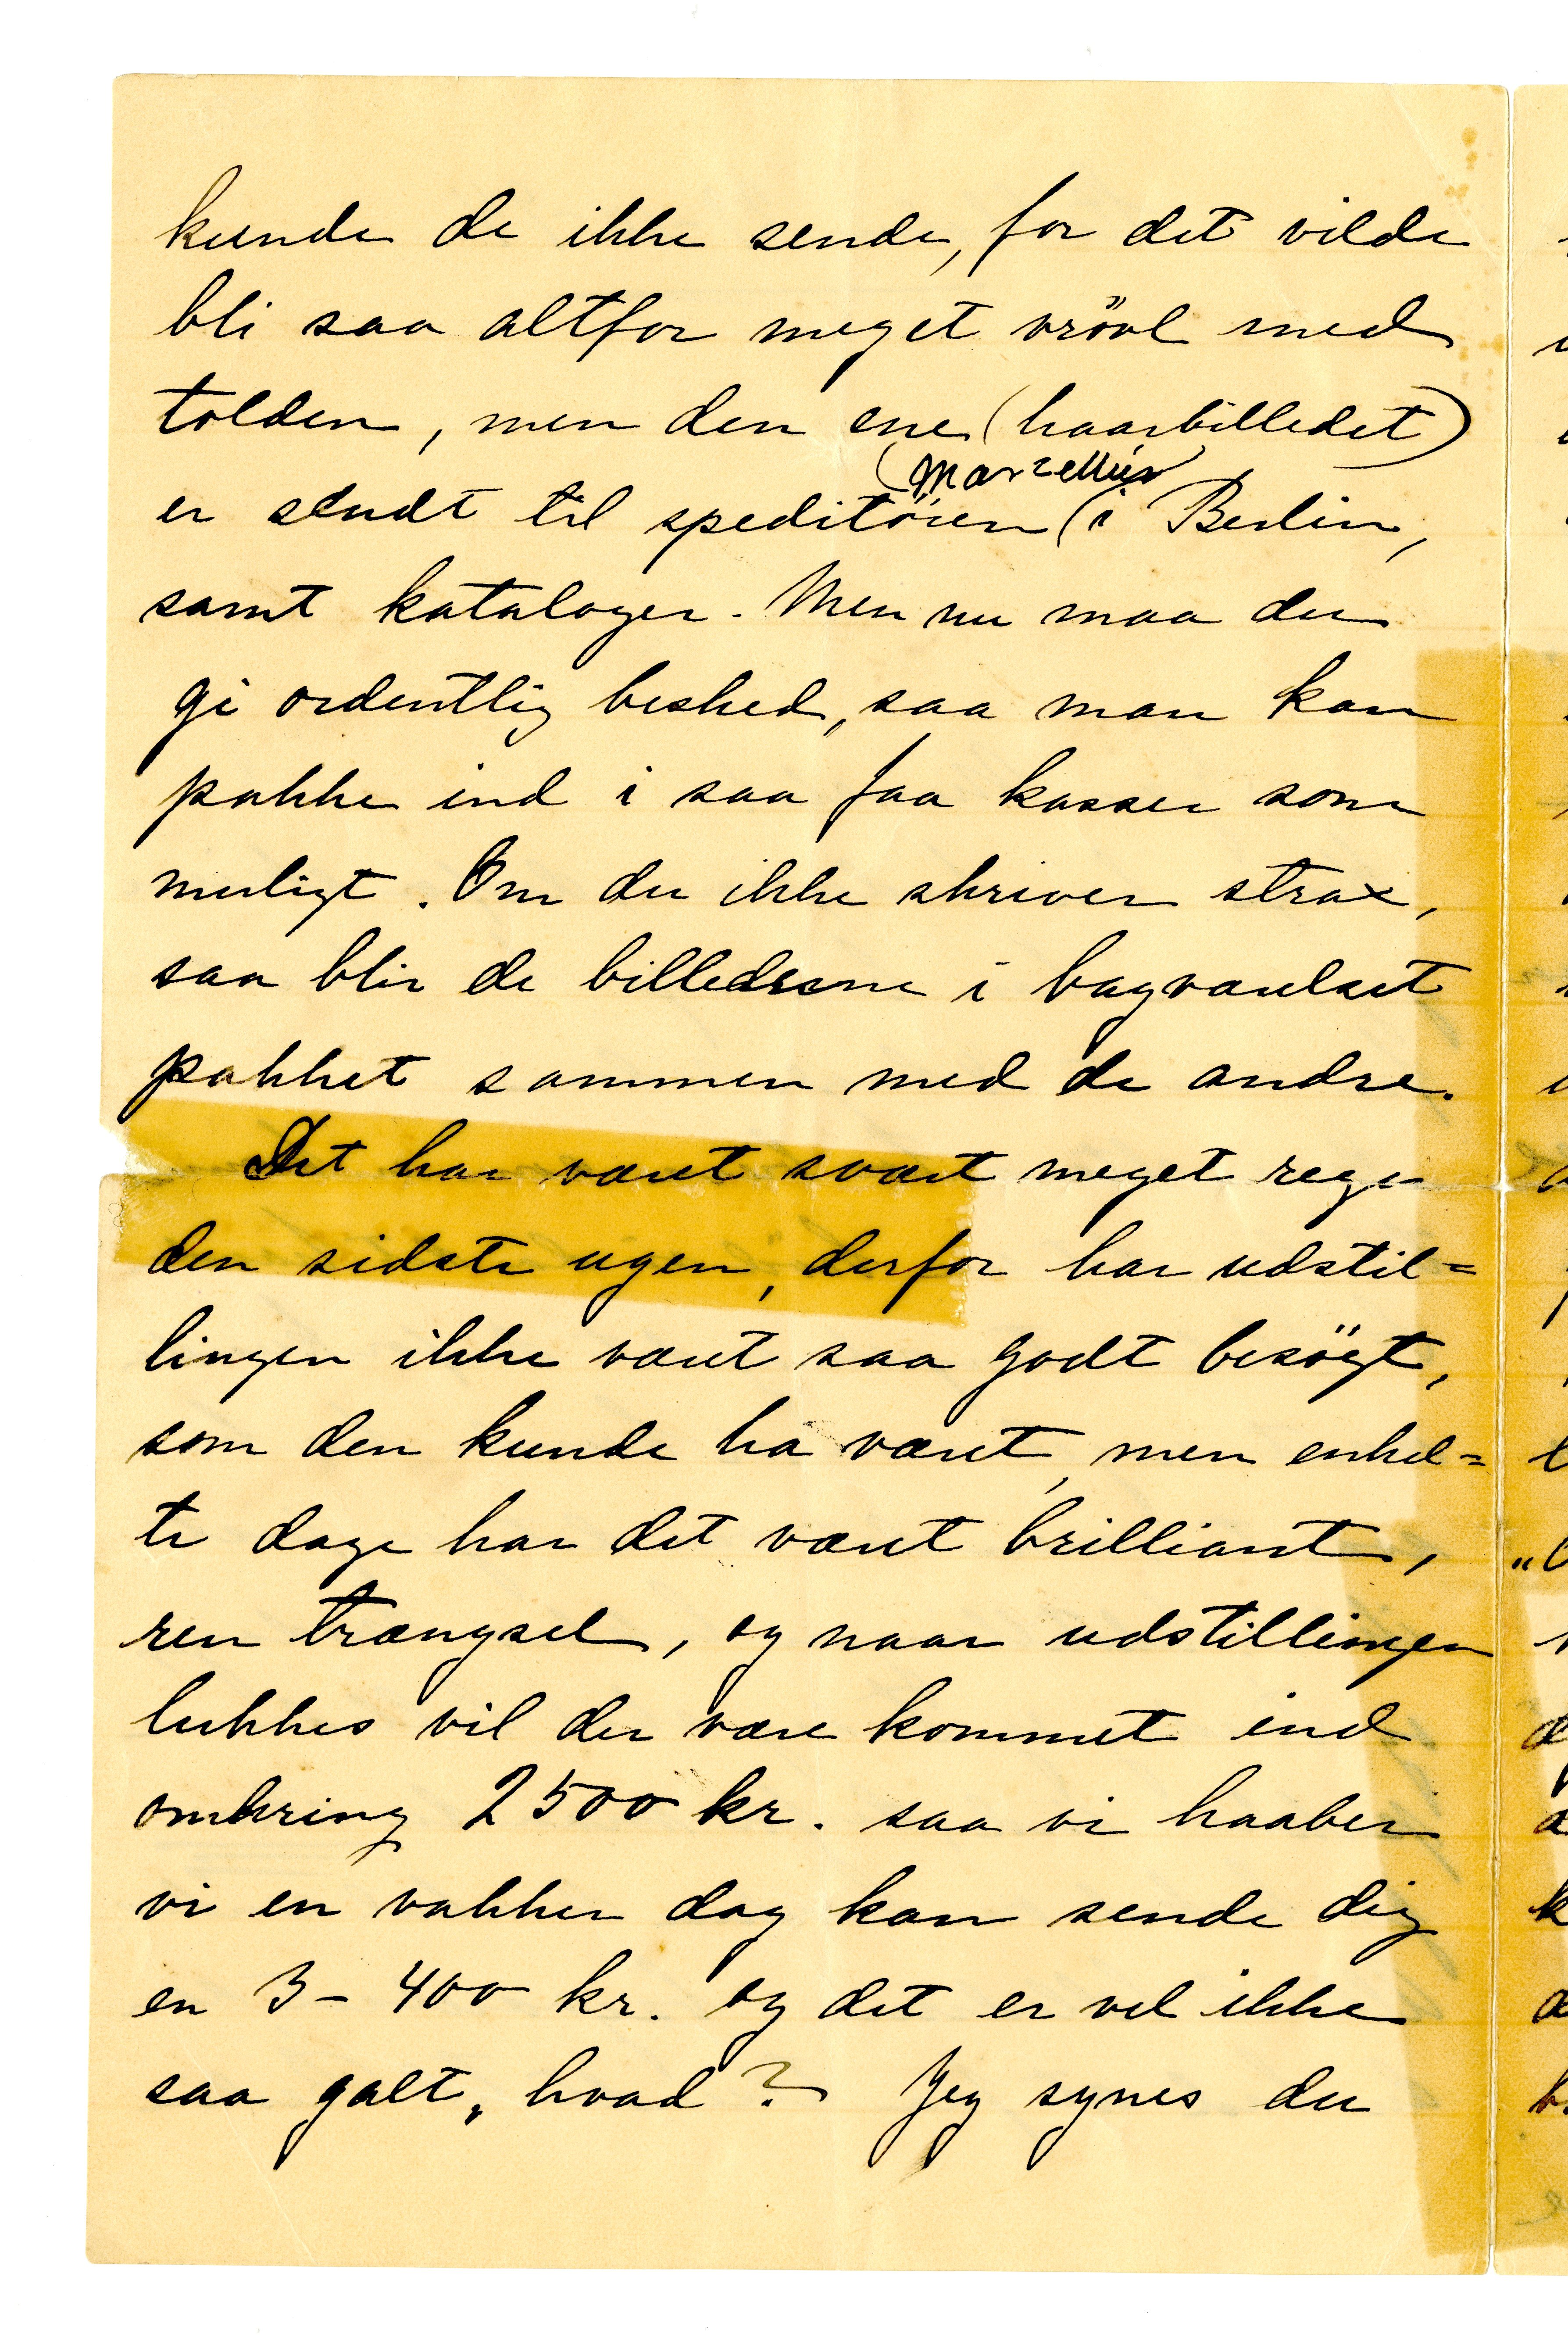 kunde de ikke sende, for det vilde
bli saa altfor meget vrövl med
tolden, men den ene (haarbilledet)
(Marzellus
er sendt til speditören (i Berlin,
samt kataloger. Men nu maa du
gi ordentlig besked, saa man kan
pakke ind i saa faa kasser som
muligt. Om du ikke skriver strax,
saa blir de billederne i bagværelset
pakket sammen med de andre.
Det har været svært meget regn
den sidste ugen, derfor har udstil=
lingen ikke været saa godt besögt,
som den kunde ha været, men enkel=
te dage har det været brilliant,
ren trængsel, og naar udstillingen
lukkes vil der være kommet ind
omkring 2500 kr. saa vi haaber
vi en vakker dag kan sende dig
en 3 - 400 kr. og det er vel ikke
saa galt, hvad? Jeg synes du